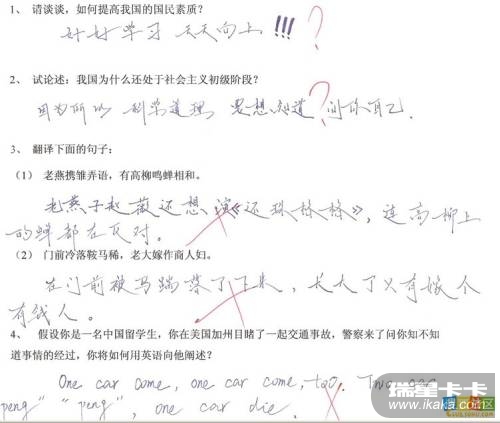 1、 请谈谈，如何提高我国的国民素质？
好好学习 天天向上 !!! ?
2、 试论述：我国为什么还处于社会主义初级阶段？
因为所以 科学道理 思想知道 问你自己. ?
3、 翻译下面的句子：
（1） 老燕携雏弄语，有高柳鸣蝉相和。
老燕子赵薇还想演《还珠格格》，连高柳上
的蝉都在反对。
（2） 门前冷落鞍马稀，老大嫁作商人妇。
在门前被马踹落了下来，长大了又有嫁个
有钱人。
4、 假设你是一名中国留学生，你在美国加州目睹了一起交通事故，警察来了问你知不知
道事情的经过，你将如何用英语向他阐述？
One car come, one car come, too. Two car
"peng" "peng", one car die.
瑞星卡卡
www.ikaka.com